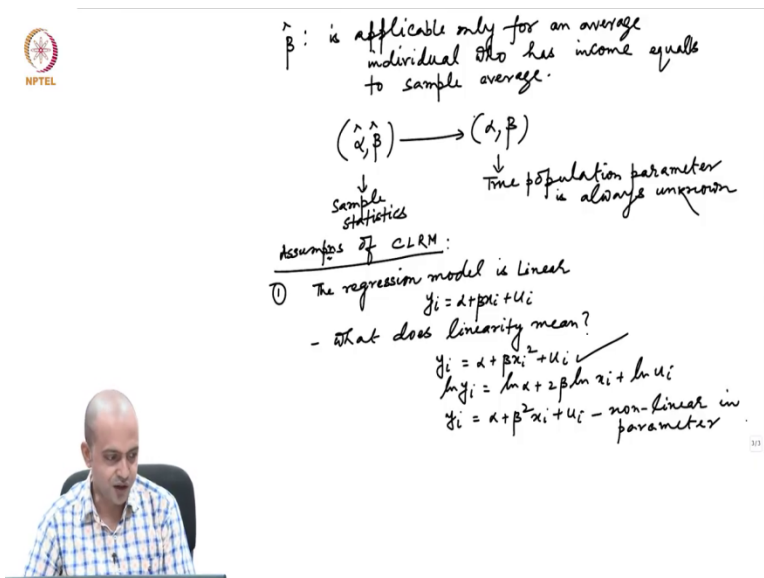 NPTEL
β̂ : is applicable only for an average
individual who has income equals
to sample average.
(α̂, β̂) → (α, β)
↓ ↓
Sample statistics
True population parameter
is always unknown
Assumpns of CLRM :
① The regression model is Linear
yi = α + βxi + ui
- What does linearity mean?
yi = α + βxi² + ui ✓
ln yi = ln α + 2β ln xi + ln ui
yi = α + β²xi + ui - non-linear in
parameter
3/3